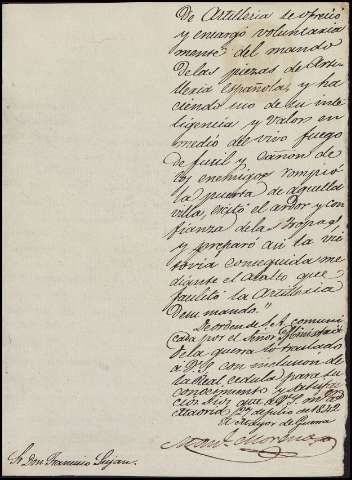 De Artilleria se ofreció
y encargó voluntaria
mente del mando
de las piezas de Arti-
lleria española, y ha
ciendo uso de su inte
ligencia y valor en
medio del vivo fuego
de fusil y cañon de
los enemigos rompió
la puerta de aquella
villa, exitó el ardor y con
fianza de las tropas,
y preparó asi la vic
toria conseguida me
diante el asalto que
facilitó la Artilleria
de su mando."
De orden de S. A. comuni
cada por el Señor Ministro
de la guerra lo traslado
a V. S. con inclusion de
la Real cedula para su
conocimiento y satisfac
cion. Dios que á V. S. m. a.
Madrid 27 de julio de 1842.
El Mayor de Guerra
Man. Moreno
Sr. Don Francisco Lujan.